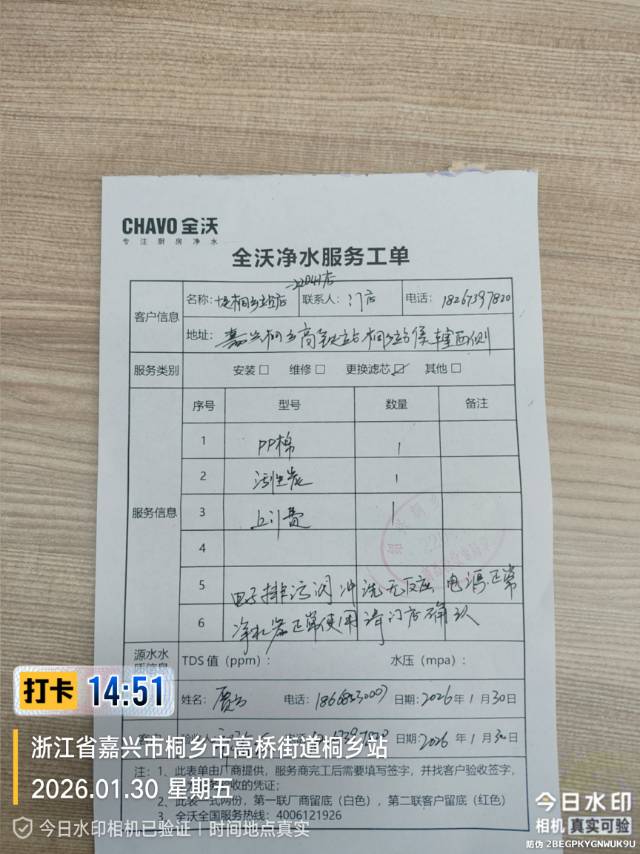 CHAVO 全沃
专注厨房净水
全沃净水服务工单
22041店
客户信息
名称：
联系人：门店
电话：18267397820
地址：嘉兴桐乡高铁站桐乡站候车西侧
服务类别
安装□ 维修□ 更换滤芯☑ 其他□
服务信息
序号 型号 数量 备注
1 PP棉 1
2 活性炭 1
3 上门费 1
4
5 电子排污阀冲洗无反应 电源正常
6 净水器正常使用请门店确认
源水水质信息
TDS值（ppm）： 水压（mpa）：
姓名： 电话： 日期：2026年1月30日
日期：2026年1月30日
注：1、此表单由厂商提供，服务商完工后需要填写签字，并找客户验收签字，
收的凭证；
2、此表一式两份，第一联厂商留底（白色），第二联客户留底（红色）
3、全沃全国服务热线：4006121926
打卡 14:51
浙江省嘉兴市桐乡市高桥街道桐乡站
2026.01.30 星期五
今日水印相机已验证 | 时间地点真实
今日水印
相机 真实可验
防伪 2BEGPKYGNWUK9U